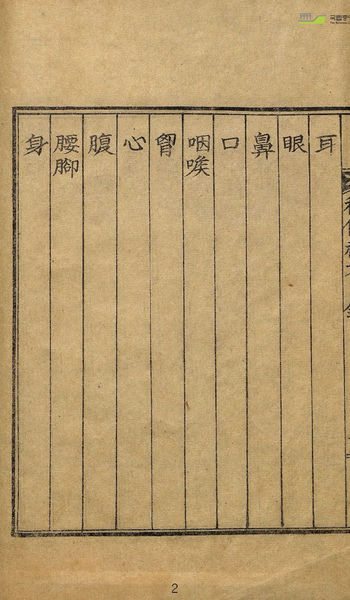 耳
眼
鼻
口
咽喉
胷
心
腹
腰脚
身
2